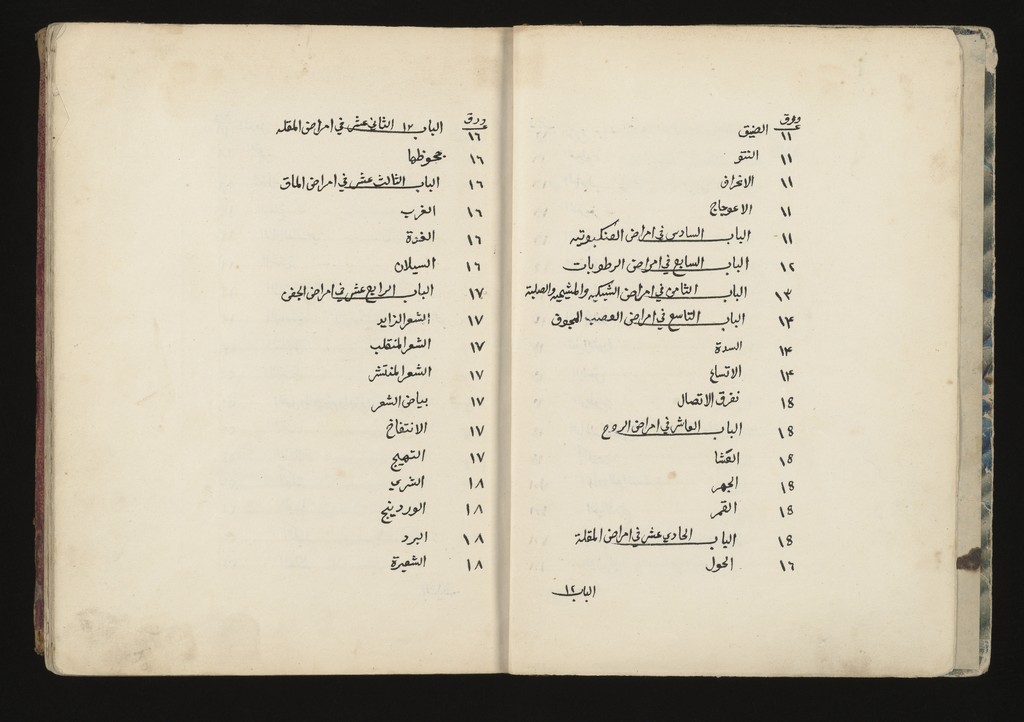 ورق
١١ الضيق
١١ النتو
١١ الانخراق
١١ الاعوجاج
١١ الباب السادس في امراض العنكبوتيه
١٢ الباب السابع في امراض الرطوبات
١٣ الباب الثامن في امراض الشبكيه والمشيميه والصلبة
١٤ الباب التاسع في امراض العصب المجوف
١٤ السدة
١٤ الاتساع
١٥ تفرق الاتصال
١٥ الباب العاشر في امراض الروح
١٥ العشا
١٥ الجهر
١٥ القمر
١٥ الباب الحادي عشر في امراض المقلة
١٦ الحول
الباب ١٢
ورق
١٦ الباب ١٢ الثاني عشر في امراض المقله
١٦ جحوظها
١٦ الباب الثالث عشر في امراض الماق
١٦ الغرب
١٦ الغدة
١٦ السيلان
١٧ الباب الرابع عشر في امراض الجفن
١٧ الشعر الزايد
١٧ الشعر المنقلب
١٧ الشعر المنتشر
١٧ بياض الشعر
١٧ الانتفاخ
١٧ التهيج
١٨ الشري
١٨ الوردينج
١٨ البرد
١٨ الشعيرة